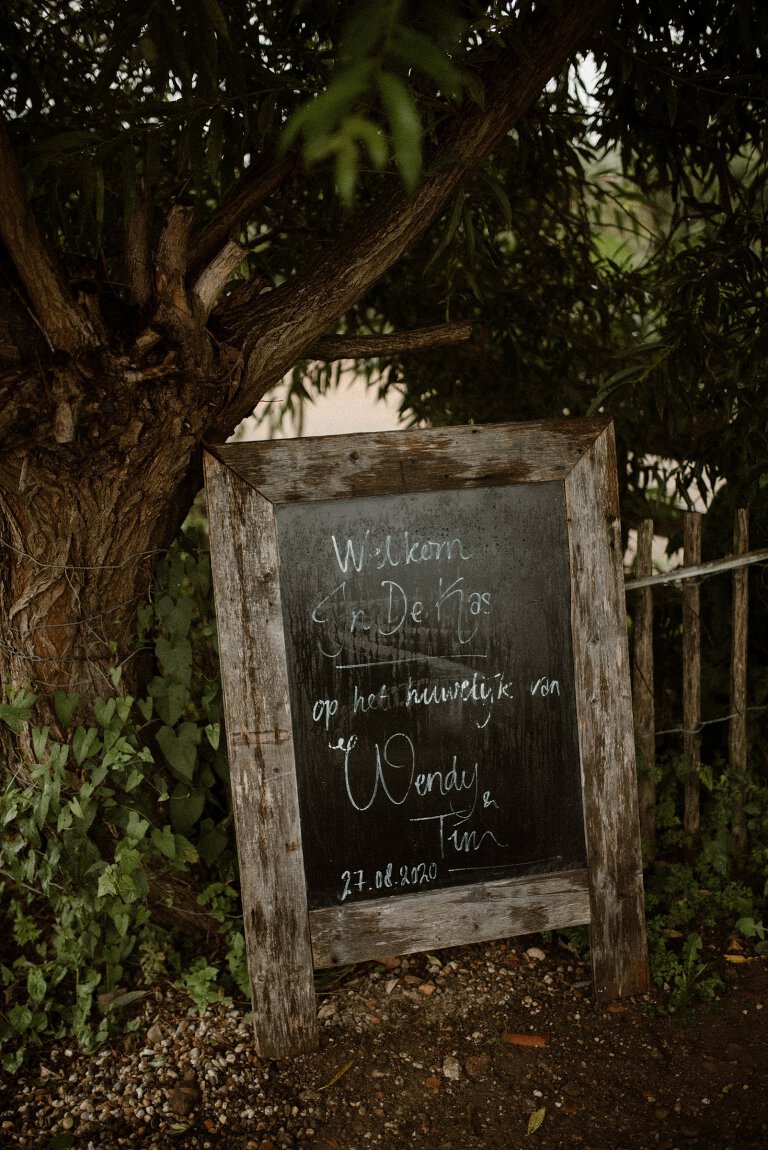 Welkom
In De Kas
op het huwelijk van
Wendy
&
Tim
27.08.2020